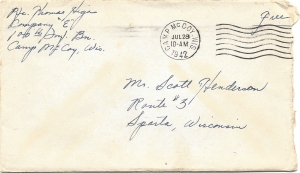 Pvc. Thomas Higa
Company "E"
100th Inf. Bn
Camp McCoy, Wis.
CAMP MCCOY, WIS.
JUL 28
10-AM
1942
Free
Mr. Scott Henderson
Route #3
Sparta, Wisconsin